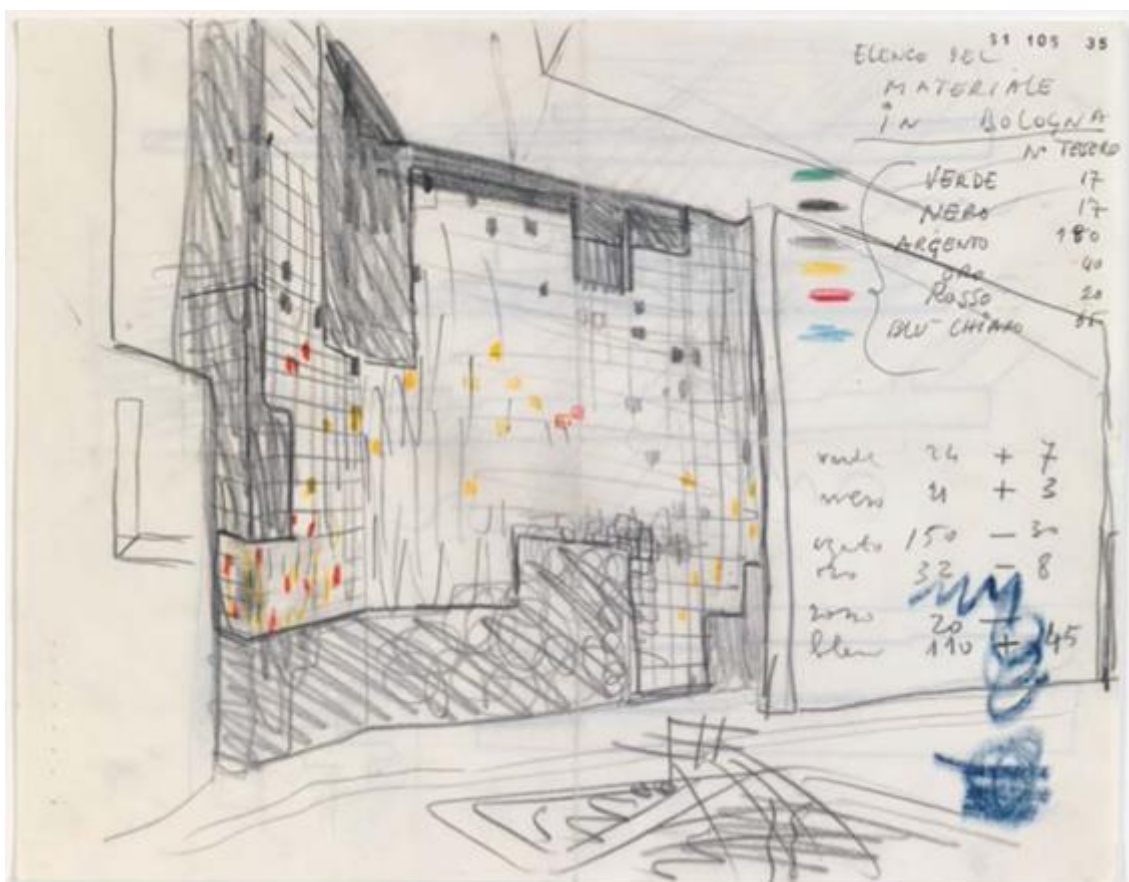 105 35
ELENCO DEL
MATERIALE
iN BOLOGNA
N° TESERO
VERDE 17
NERO 17
ARGENTO 180
ORO 40
ROSSO 20
BLU CHIARO 65
verde 24 + 7
nero + 3
argento 150 - 30
oro 32 - 8
rosso 20 -
bleu 110 + 45